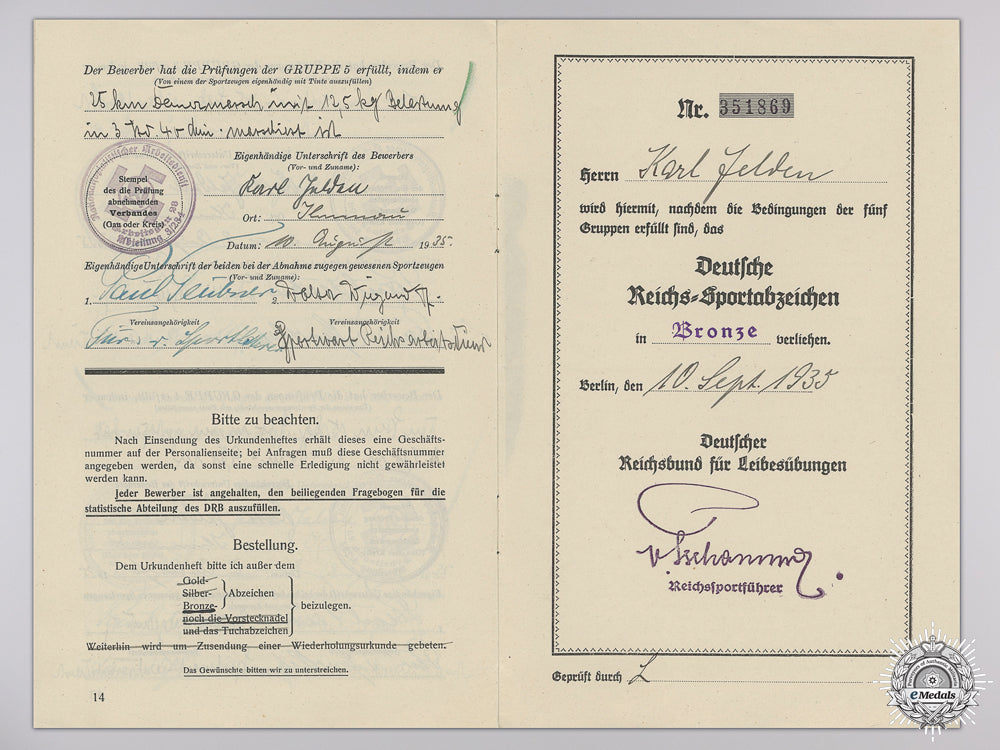 Der Bewerber hat die Prüfungen der GRUPPE 5 erfüllt, indem er
(Von einem der Sportzeugen eigenhändig mit Tinte auszufüllen)
25 km Dauermarsch mit 12,5 kg Belastung
in 3 Std. 40 Min. marschiert ist
Nationalsozialistischer Arbeitsdienst
Stempel
des die Prüfung
abnehmenden
Verbandes
(Gau oder Kreis)
Abteilung 3/284
Eigenhändige Unterschrift des Bewerbers
(Vor- und Zuname):
Karl Felden
Ort: Ilmenau
Datum: 10. August 1935.
Eigenhändige Unterschrift der beiden bei der Abnahme zugegen gewesenen Sportzeugen
(Vor- und Zuname):
1. Paul Teubner 2. Walter
Vereinsangehörigkeit Vereinsangehörigkeit
Turn- u. Sportlehrer Sportwart Reichsarbeitsdienst
Bitte zu beachten.
Nach Einsendung des Urkundenheftes erhält dieses eine Geschäfts-
nummer auf der Personalienseite; bei Anfragen muß diese Geschäftsnummer
angegeben werden, da sonst eine schnelle Erledigung nicht gewährleistet
werden kann.
Jeder Bewerber ist angehalten, den beiliegenden Fragebogen für die
statistische Abteilung des DRB auszufüllen.
Bestellung.
Dem Urkundenheft bitte ich außer dem
Gold-
Silber- Abzeichen
Bronze- beizulegen.
noch die Vorstecknadel
und das Tuchabzeichen
Weiterhin wird um Zusendung einer Wiederholungsurkunde gebeten.
Das Gewünschte bitten wir zu unterstreichen.
14
Nr. 351869
Herrn Karl Felden
wird hiermit, nachdem die Bedingungen der fünf
Gruppen erfüllt sind, das
Deutsche
Reichs-Sportabzeichen
in Bronze verliehen.
Berlin, den 10. Sept. 1935
Deutscher
Reichsbund für Leibesübungen
v. Tschammer
Reichssportführer
Geprüft durch
Purveyors of Authentic Militaria
eMedals